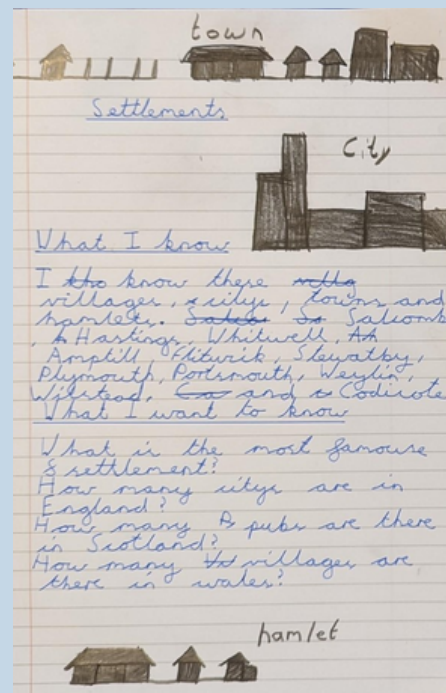 town
Settlements
City
What I know
I know there
villages, citys, towns and
hamlets. Salcomb
, Hastings, Whitwell,
Amptill, Flitwick, Stewatby,
Plymouth, Portsmouth, Weylin,
Wilstead, and Codicote
What I want to know
What is the most famouse
settlement?
How many citys are in
England?
How many pubs are there
in Scotland?
How many villages are
there in wales?
hamlet